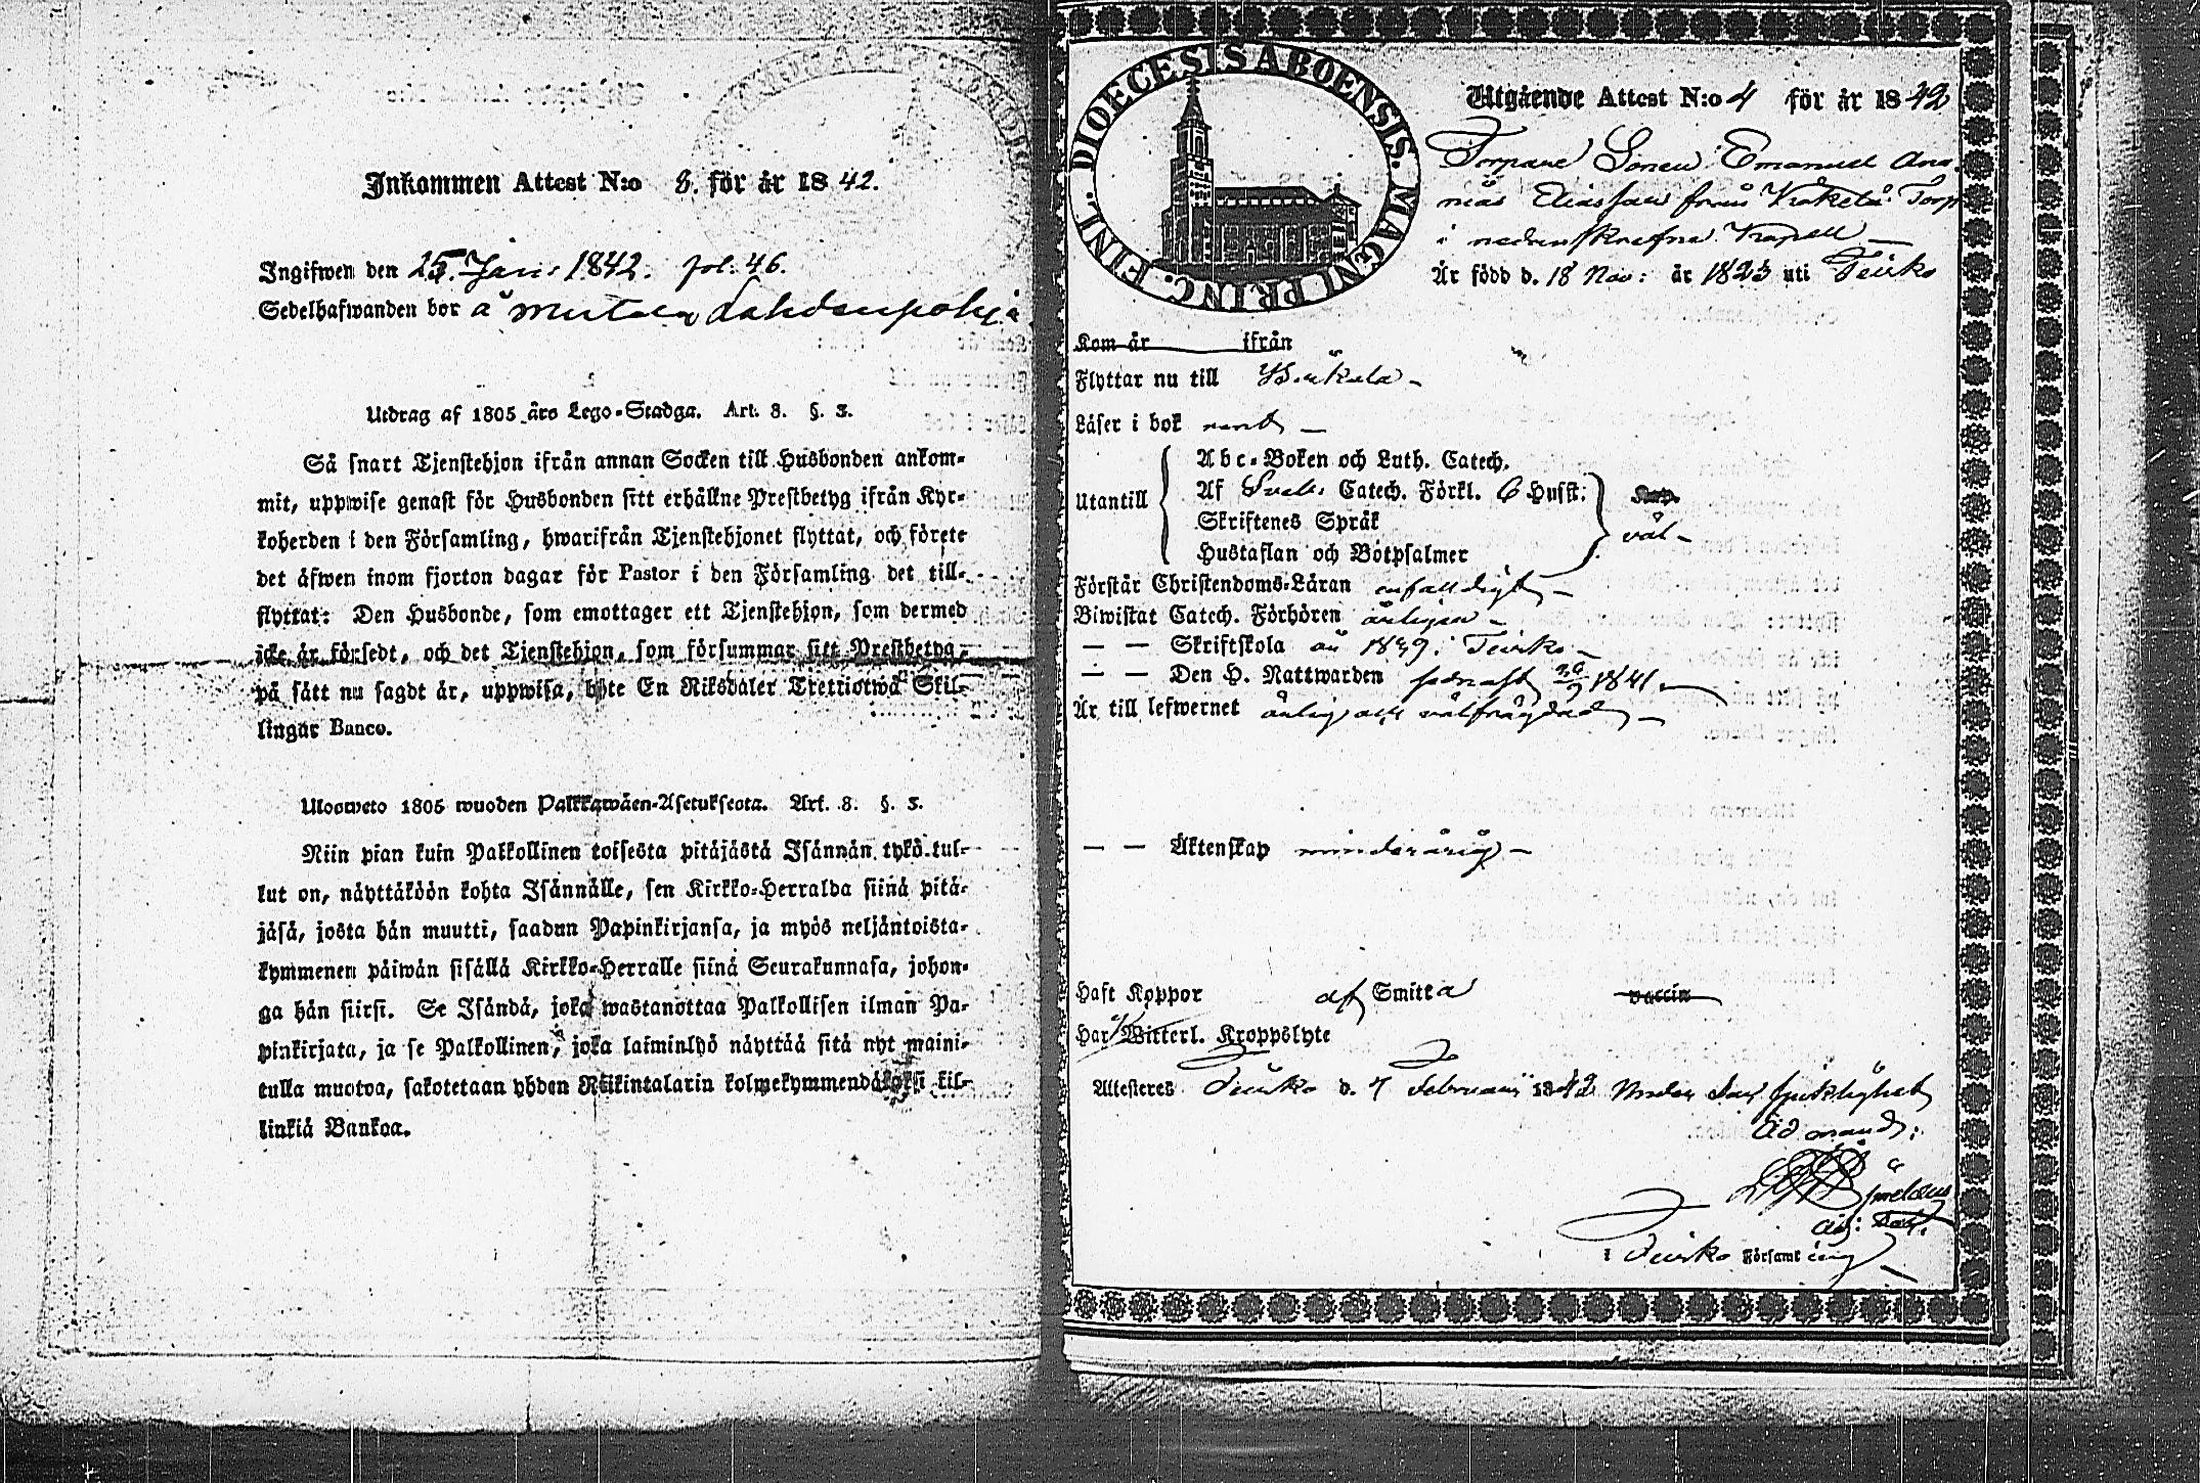 Inkommen Attest N:o 8. för år 1842.
Ingifwen den 25. Jan: 1842. fol: 46.
Sedelhafwanden bor å Lahdenpohja
Utdrag af 1805 års Lego-Stadga. Art. 8. §. 3.
Så snart Tjenstehjon ifrån annan Socken till Husbonden ankom-
mit, uppwise genast för Husbonden sitt erhållne Prestbetyg ifrån Kyr-
koherden i den Församling, hwarifrån Tjenstehjonet flyttat, och förete
det äfwen inom fjorton dagar för Pastor i den Församling det till-
flyttat: Den Husbonde, som emottager ett Tjenstehjon, som dermed
icke är försedt, och det Tjenstehjon, som försummar sitt Prestbetyg,
på sätt nu sagdt är, uppwisa, böte En Riksdaler Trettiotwå Skil-
lingar Banco.
Ulosweto 1805 wuoden Palkkawäen-Asetuksesta. Art. 8. §. 3.
Niin pian kuin Palkollinen toisesta pitäjästä Isännän tykö tul-
lut on, näyttäköön kohta Isännälle, sen Kirkko-Herralda siinä pitä-
jäsä, josta hän muutti, saadun Papinkirjansa, ja myös neljäntoista-
kymmenen päiwän sisällä Kirkko-Herralle siinä Seurakunnasa, johon-
ga hän siirsi. Se Isändä, joka wastanottaa Palkollisen ilman Pa-
pinkirjata, ja se Palkollinen, joka laiminlyö näyttää sitä nyt maini-
tulla muotoa, sakotetaan yhden Riikintalarin kolmekymmendäkaksi kil-
linkiä Bankoa.
DIOECESIS ABOENSIS. MAGNI PRINC. FINL.
Utgående Attest N:o 4 för år 1842
Torpare Sonen Emanuel Ana-
nias Eliasson från Torp
i nedanskrefne Kapell
Är född d. 18 Nov: år 1823 uti Teisko
Kom år ifrån
Flyttar nu till
Läser i bok
Utantill
Abc-Boken och Luth. Catech.
Af Catech. Förkl. 6 Husst.
Skriftenes Språk
Hustaflan och Botpsalmer
väl
Förstår Christendoms-Läran enfaldigt
Biwistat Catech. Förhören årligen
— — Skriftskola år 1839 i Teisko
— — Den H. Nattwarden senast 1841
Är till lefwernet ärlig och välfrägdad
— — Äktenskap minderårig
Haft Koppor af Smitta vaccin
Har Witterl. Kroppslyte
Attesteres Teisko d. 7 Februarii 1842
Ad mand:
Adj:
i Teisko Församling